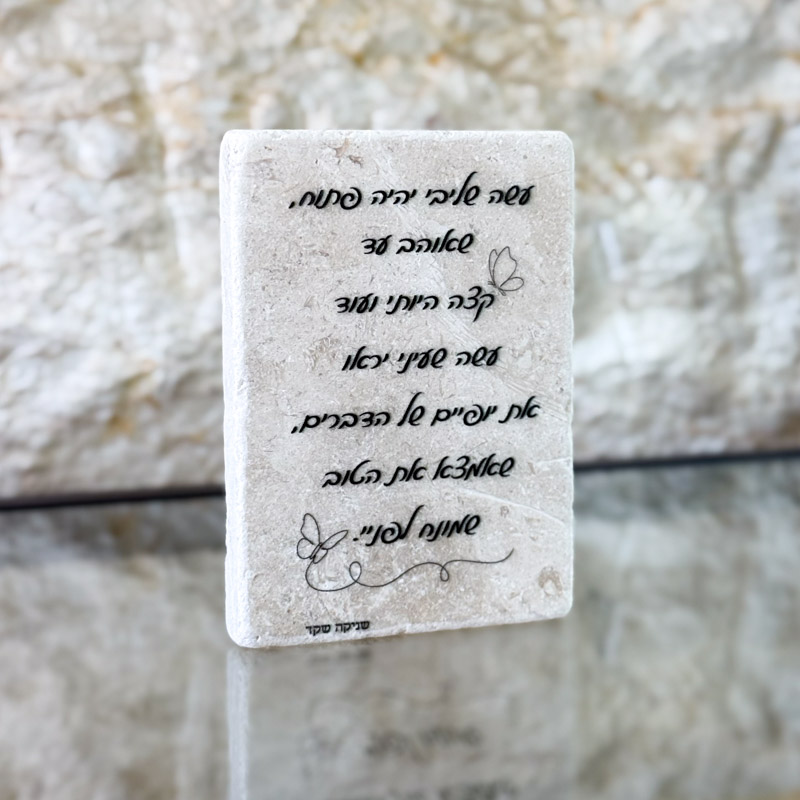 עשה שליבי יהיה פתוח,
שאוהב עד
קצה היותי ועוד
עשה שעיני יראו
את יופיים של הדברים,
שאמצא את הטוב
שמונח לפניי.
שניקה שקד